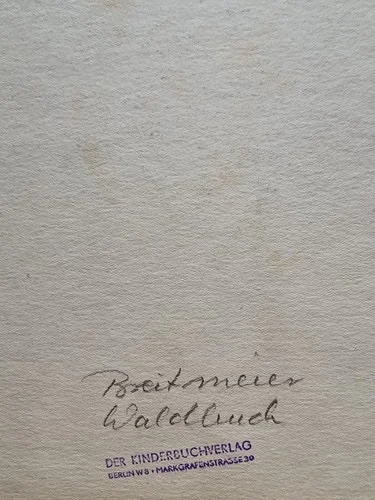 Breitmeier
Waldbuch
DER KINDERBUCHVERLAG
BERLIN W 8 • MARKGRAFENSTRASSE 30